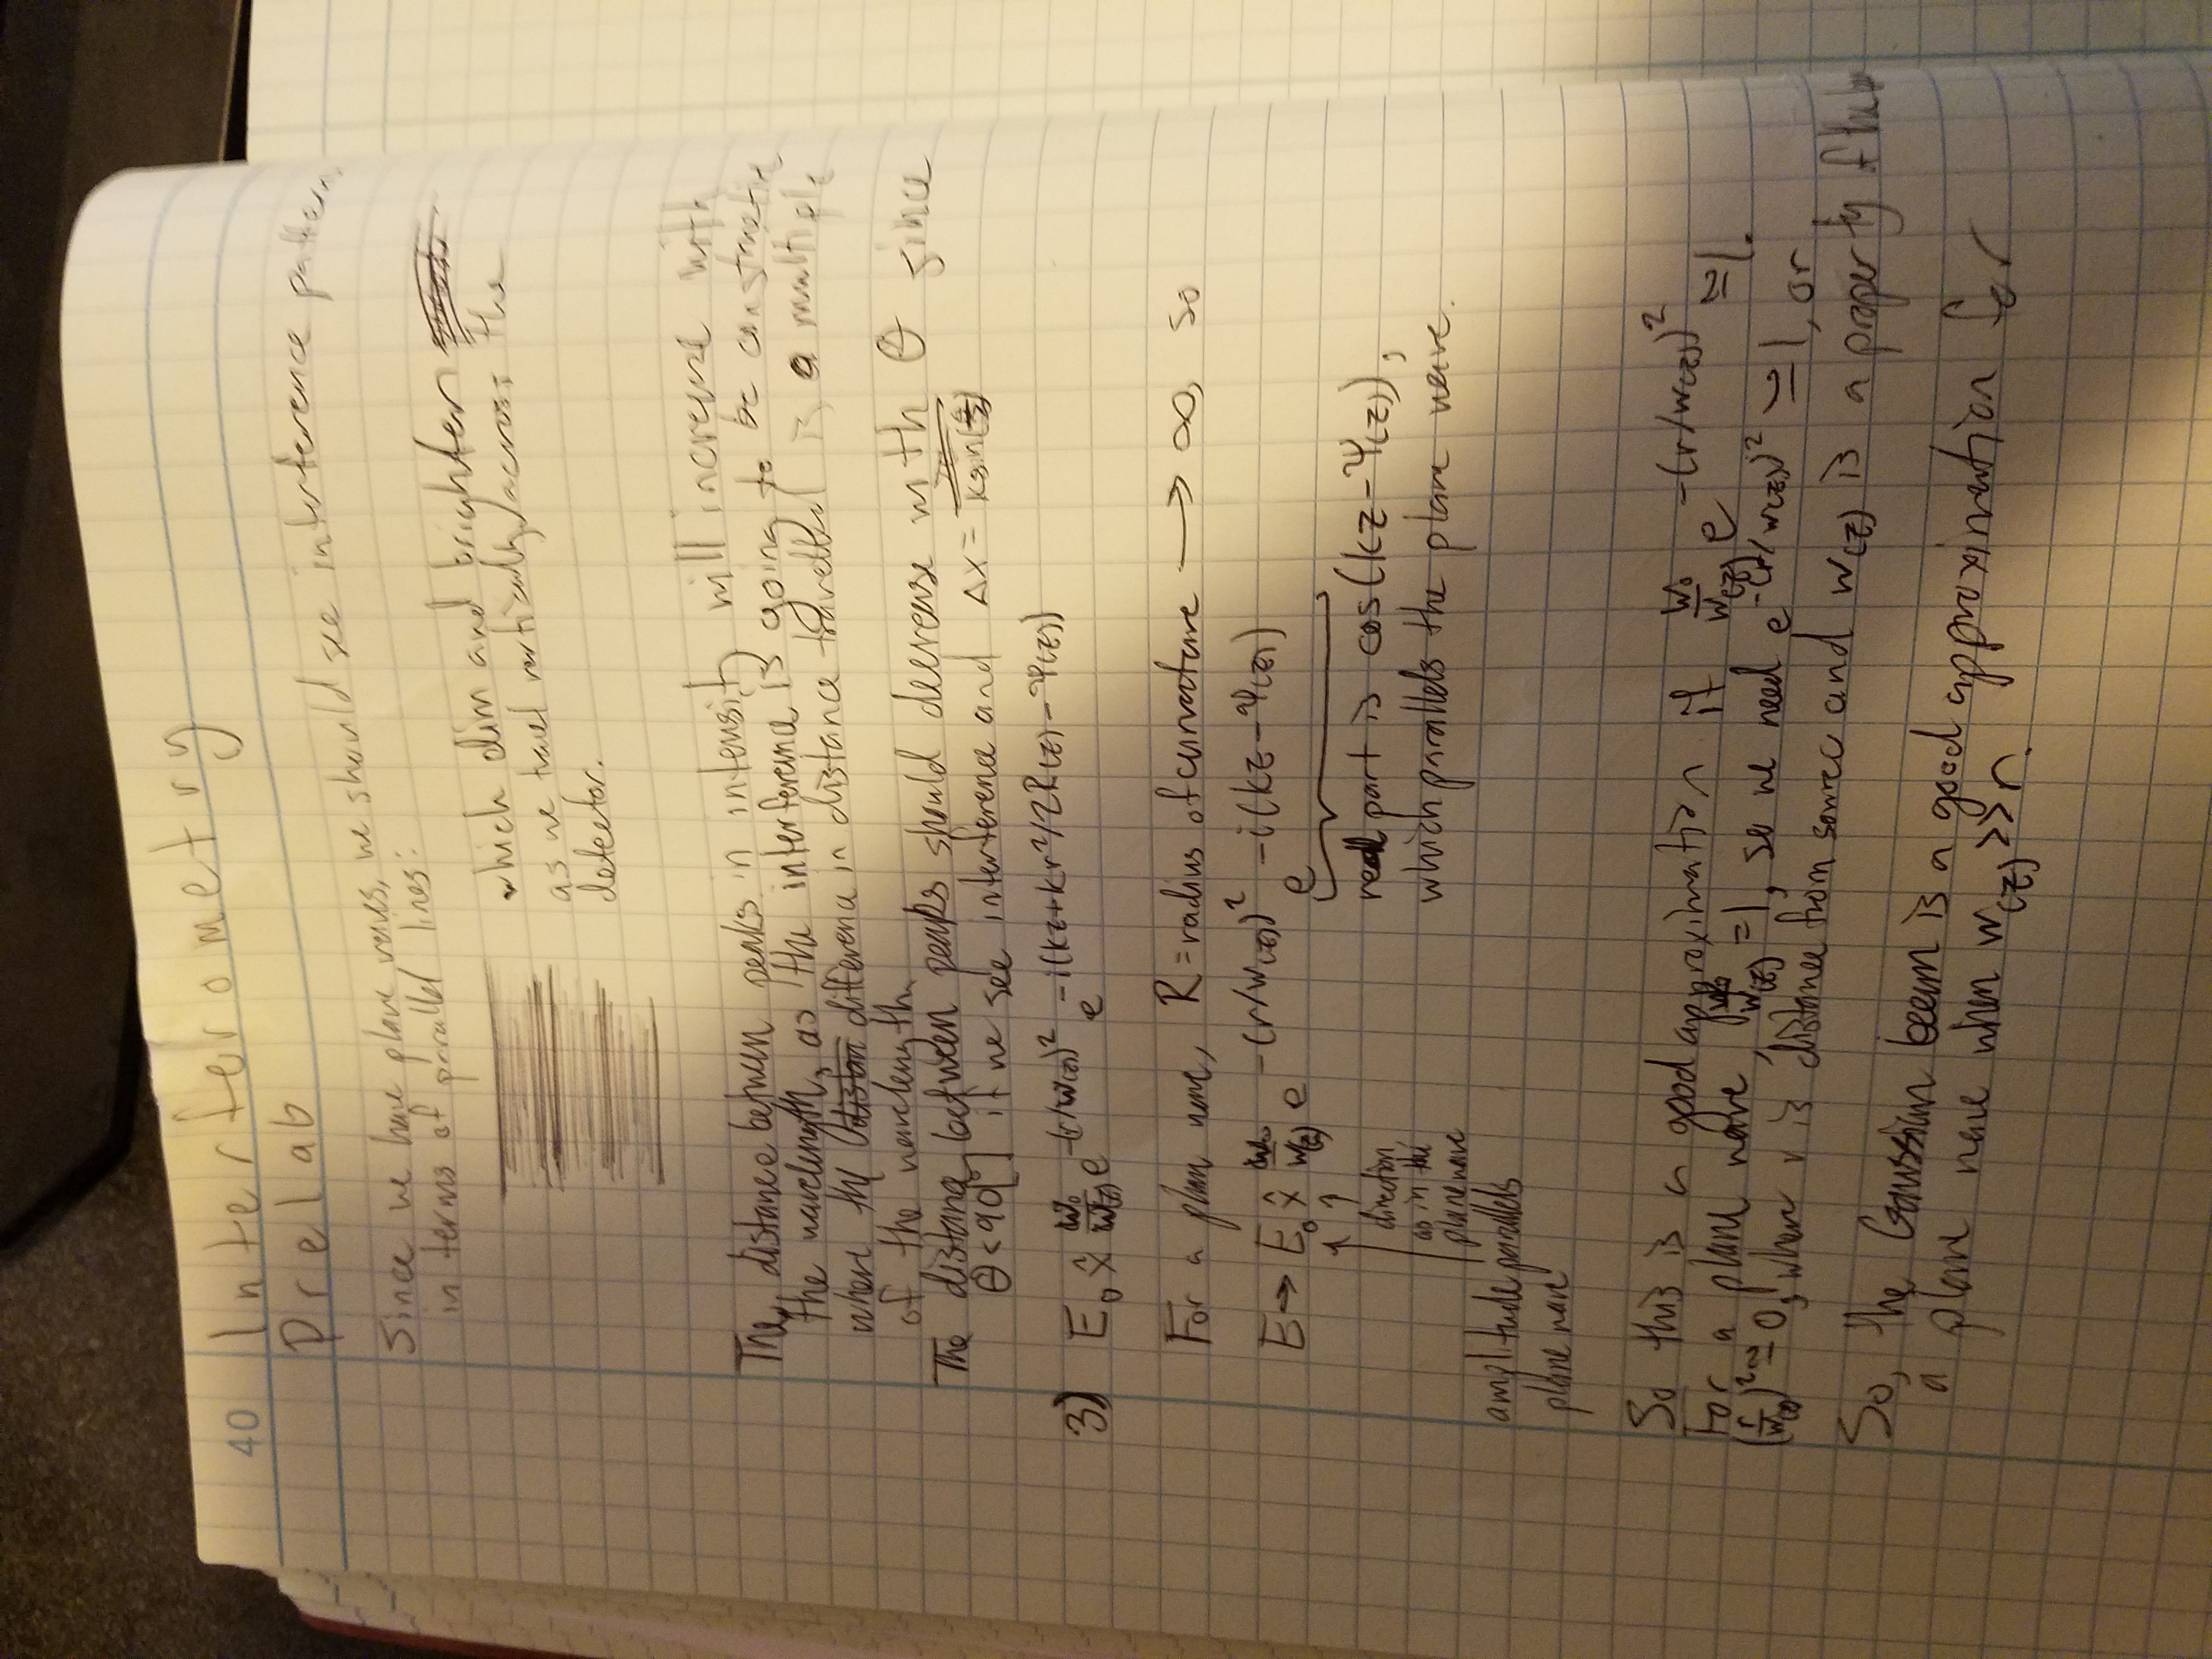 40 Interferometry
Prelab
Since we have plane waves, we should see interference pattern
in terms of parallel lines:
which dim and brighten
as we travel vertically across the
detector.
The distance between peaks in intensity will increase with
the wavelength, as the interference is going to be constructive
where the difference in distance travelled is a multiple
of the wavelength.
The distance between peaks should decrease with θ since
θ<90[°] if we see interference and Δx = /ksin(θ/2)
3) E₀ x̂ w₀/w(z) e^-(r/w(z))² e^-i(kz+kr²/2R(z)-Ψ(z))
For a plane wave, R=radius of curvature → ∞, so
E→ E₀ x̂ w₀/w(z) e^-(r/w(z))² e^-i(kz-Ψ(z))
real part is cos(kz-Ψ(z)),
which parallels the plane wave.
direction
as in the
plane wave
amplitude parallels
plane wave
So this is a good approximation if w₀/w(z) e^-(r/w(z))² ≅1.
For a plane wave, w₀/w(z) =1, so we need e^-(r/w(z))² ≅1, or
(r/w(z))² ≅ 0, where r is distance from source and w(z) is a property of the
So, the Gaussian beam is a good approximation for
a plane wave when w(z)>>r.